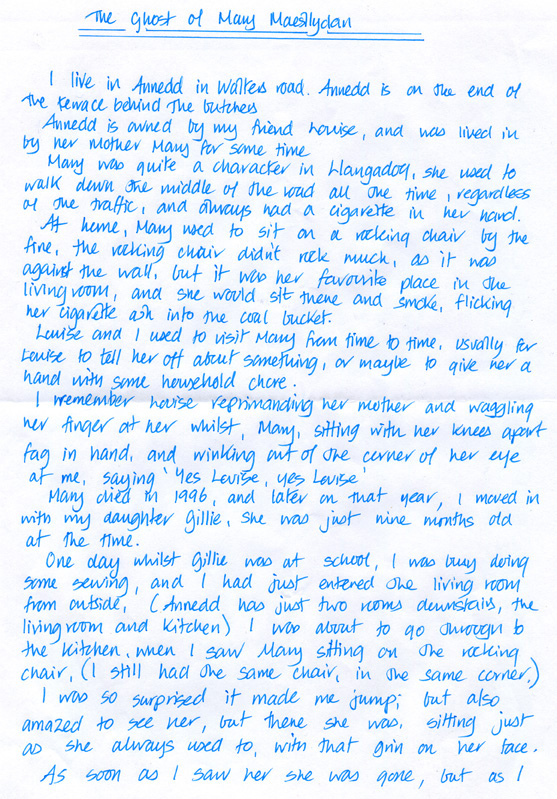 The Ghost of Mary Maesllydan
I live in Annedd in Walters road. Annedd is on the end of
the terrace behind the butchers
Annedd is owned by my friend Louise, and was lived in
by her mother Mary for some time
Mary was quite a character in Llangadog, she used to
walk down the middle of the road all the time, regardless
of the traffic, and always had a cigarette in her hand.
At home, Mary used to sit on a rocking chair by the
fire, the rocking chair didn't rock much, as it was
against the wall, but it was her favourite place in the
livingroom, and she would sit there and smoke, flicking
her cigarette ash into the coal bucket.
Louise and I used to visit Mary from time to time, usually for
Louise to tell her off about something, or maybe to give her a
hand with some household chore.
I remember Louise reprimanding her mother and waggling
her finger at her whilst, Mary, sitting with her knees apart
fag in hand, and winking out of the corner of her eye
at me, saying 'Yes Louise, yes Louise'
Mary died in 1996, and later on that year, I moved in
with my daughter Gillie, she was just nine months old
at the time.
One day whilst Gillie was at school, I was busy doing
some sewing, and I had just entered the living room
from outside, (Annedd has just two rooms downstairs, the
livingroom and kitchen) I was about to go through to
the kitchen, when I saw Mary sitting on the rocking
chair, (I still had the same chair, in the same corner.)
I was so surprised it made me jump; but also
amazed to see her, but there she was, sitting just
as she always used to, with that grin on her face.
As soon as I saw her she was gone, but as I